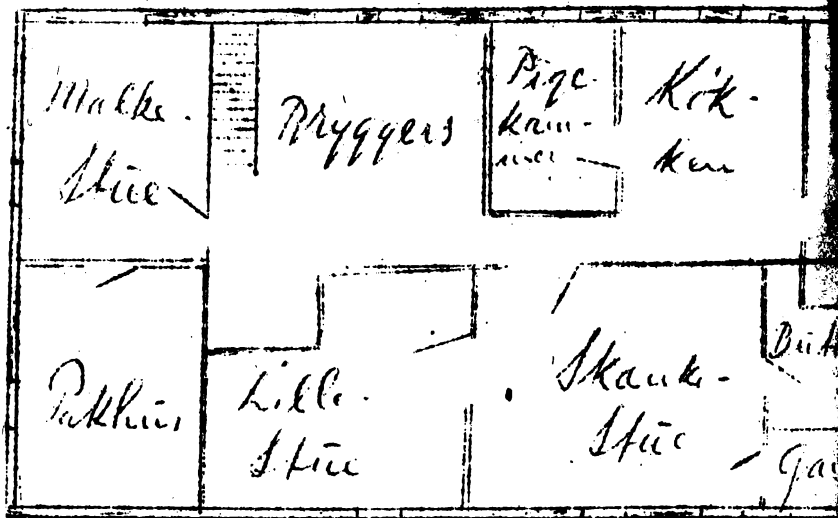 Malke-
Stue
Bryggers
Pige
kam-
mer
Køk-
ken
Pakhus
Lille-
Stue
Skænke-
Stue